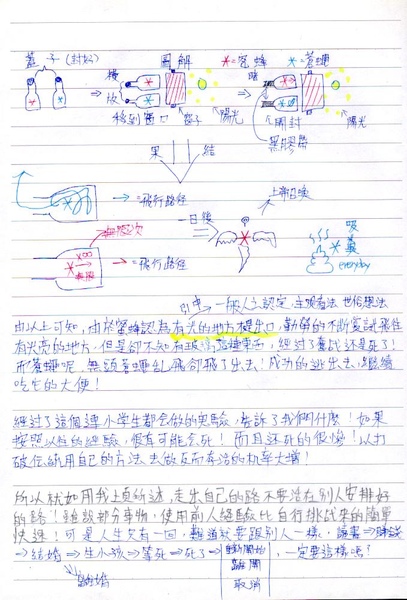 蓋子(封好)
圖解
*=蜜蜂 *=蒼蠅
橫放
移到窗口
箱子
陽光
暗
開封
黑膠帶
陽光
結果
=飛行路徑
無限次
=飛行路徑
一日後
上帝召喚
吸糞
everyday
引申
一般人之認定,主觀看法 世俗想法
由以上可知,由於蜜蜂認為有光的地方才是出口,勤勞的不斷嘗試飛往
有光亮的地方,但是卻不知有玻璃這種東西,經過了奮戰還是死了!
而蒼蠅呢 無頭蒼蠅亂飛卻飛了出去!成功的逃出去,繼續
吃它的大便!
經過了這個連小學生都會做的實驗,告訴了我們什麼!如果
按照以往的經驗,很有可能會死!而且還死的很慘!以打
破傳統用自己的方法去做反而存活的機率大增!
所以就如同我上頁所述,走出自己的路不要活在別人安排好
的路!雖說部分事物,使用前人經驗比自行挑戰來的簡單
快速!可是人生只有一回,難道就要跟別人一樣,讀書⇒賺錢
⇒結婚⇒生小孩⇒等死⇒死了⇒
離開
取消
,一定要這樣嗎?
離婚